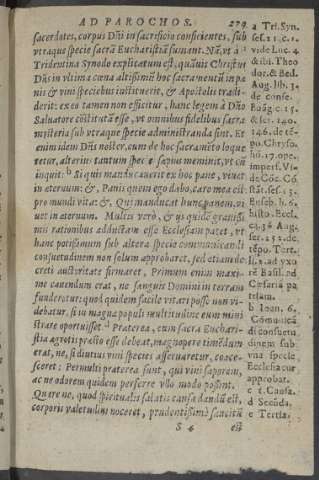 AD PAROCHOS. 279
sacerdotes, corpus Dñi in sacrificio conficientes, sub
vtraque specie sacrā Eucharistiā sumant. Nā, vt à
Tridentina Synodo explicatum est, quāuis Christus
Dñs in vltima cœna altissimū hoc sacramentū in pa-
nis & vini speciebus instituerit, & Apostolis tradi-
derit: ex eo tamen non efficitur, hanc legem à Dño
Saluatore cōstitutā esse, vt omnibus fidelibus sacra
mysteria sub vtraque specie administranda sint. Et
enim idem Dñs noster, cum de hoc sacramēto loque
retur, alterius tantum speciei sæpius meminit, vt cū
inquit: Si quis manducauerit ex hoc pane, viuet
in æternum: &, Panis quem ego dabo, caro mea est
pro mundi vita: &, Qui manducat hunc panem, vi
uet in æternum. Multis verò, & ijs quidē grauissi
mis rationibus adductam esse Ecclesiam patet, vt
hanc potissimum sub altera specie communicandi
consuetudinem non solum approbaret, sed etiam de
creti auctoritate firmaret. Primum enim maxi-
me cauendum erat, ne sanguis Domini in terram
funderetur: quod quidem facile vitari posse non vi-
debatur, si in magna populi multitudine eum mini
strare oportuisset. Præterea, cum sacra Euchari-
stia ægrotis præsto esse debeat, magnopere timēdum
erat, ne, si diutius vini species asseruaretur, coace-
sceret: Permulti præterea sunt, qui vini saporem,
ac ne odorem quidem perferre vllo modo possint.
Quare ne, quod spiritualis salutis causa dandū est,
corporis valetudini noceret, prudentissimè sancitū
S 4 est
a Tri. Syn.
ses. 21. c. 1.
vide Luc. 4
& ibi. Theo
dor. & Bed.
Aug. lib. 3.
de conse.
Euāg. c. 25.
& ser. 140.
146. de tē-
po. Chryso.
hō. 17. ope.
imperf. Vi-
de Cōc. Cō
stāt. ses. 13.
Euseb. h. 6.
histo. Eccl.
c. 36 Aug.
ser. 252. de
tēpo. Tert.
li. 2. ad vxo
rē Basil. ad
Cæsariā pa
triam.
b Ioan. 6.
Cōmunicā
di consuetu
dinem sub
vna specie,
Ecclesia cur
approbar.
c 1. Causa.
d Secūda.
e Tertia.